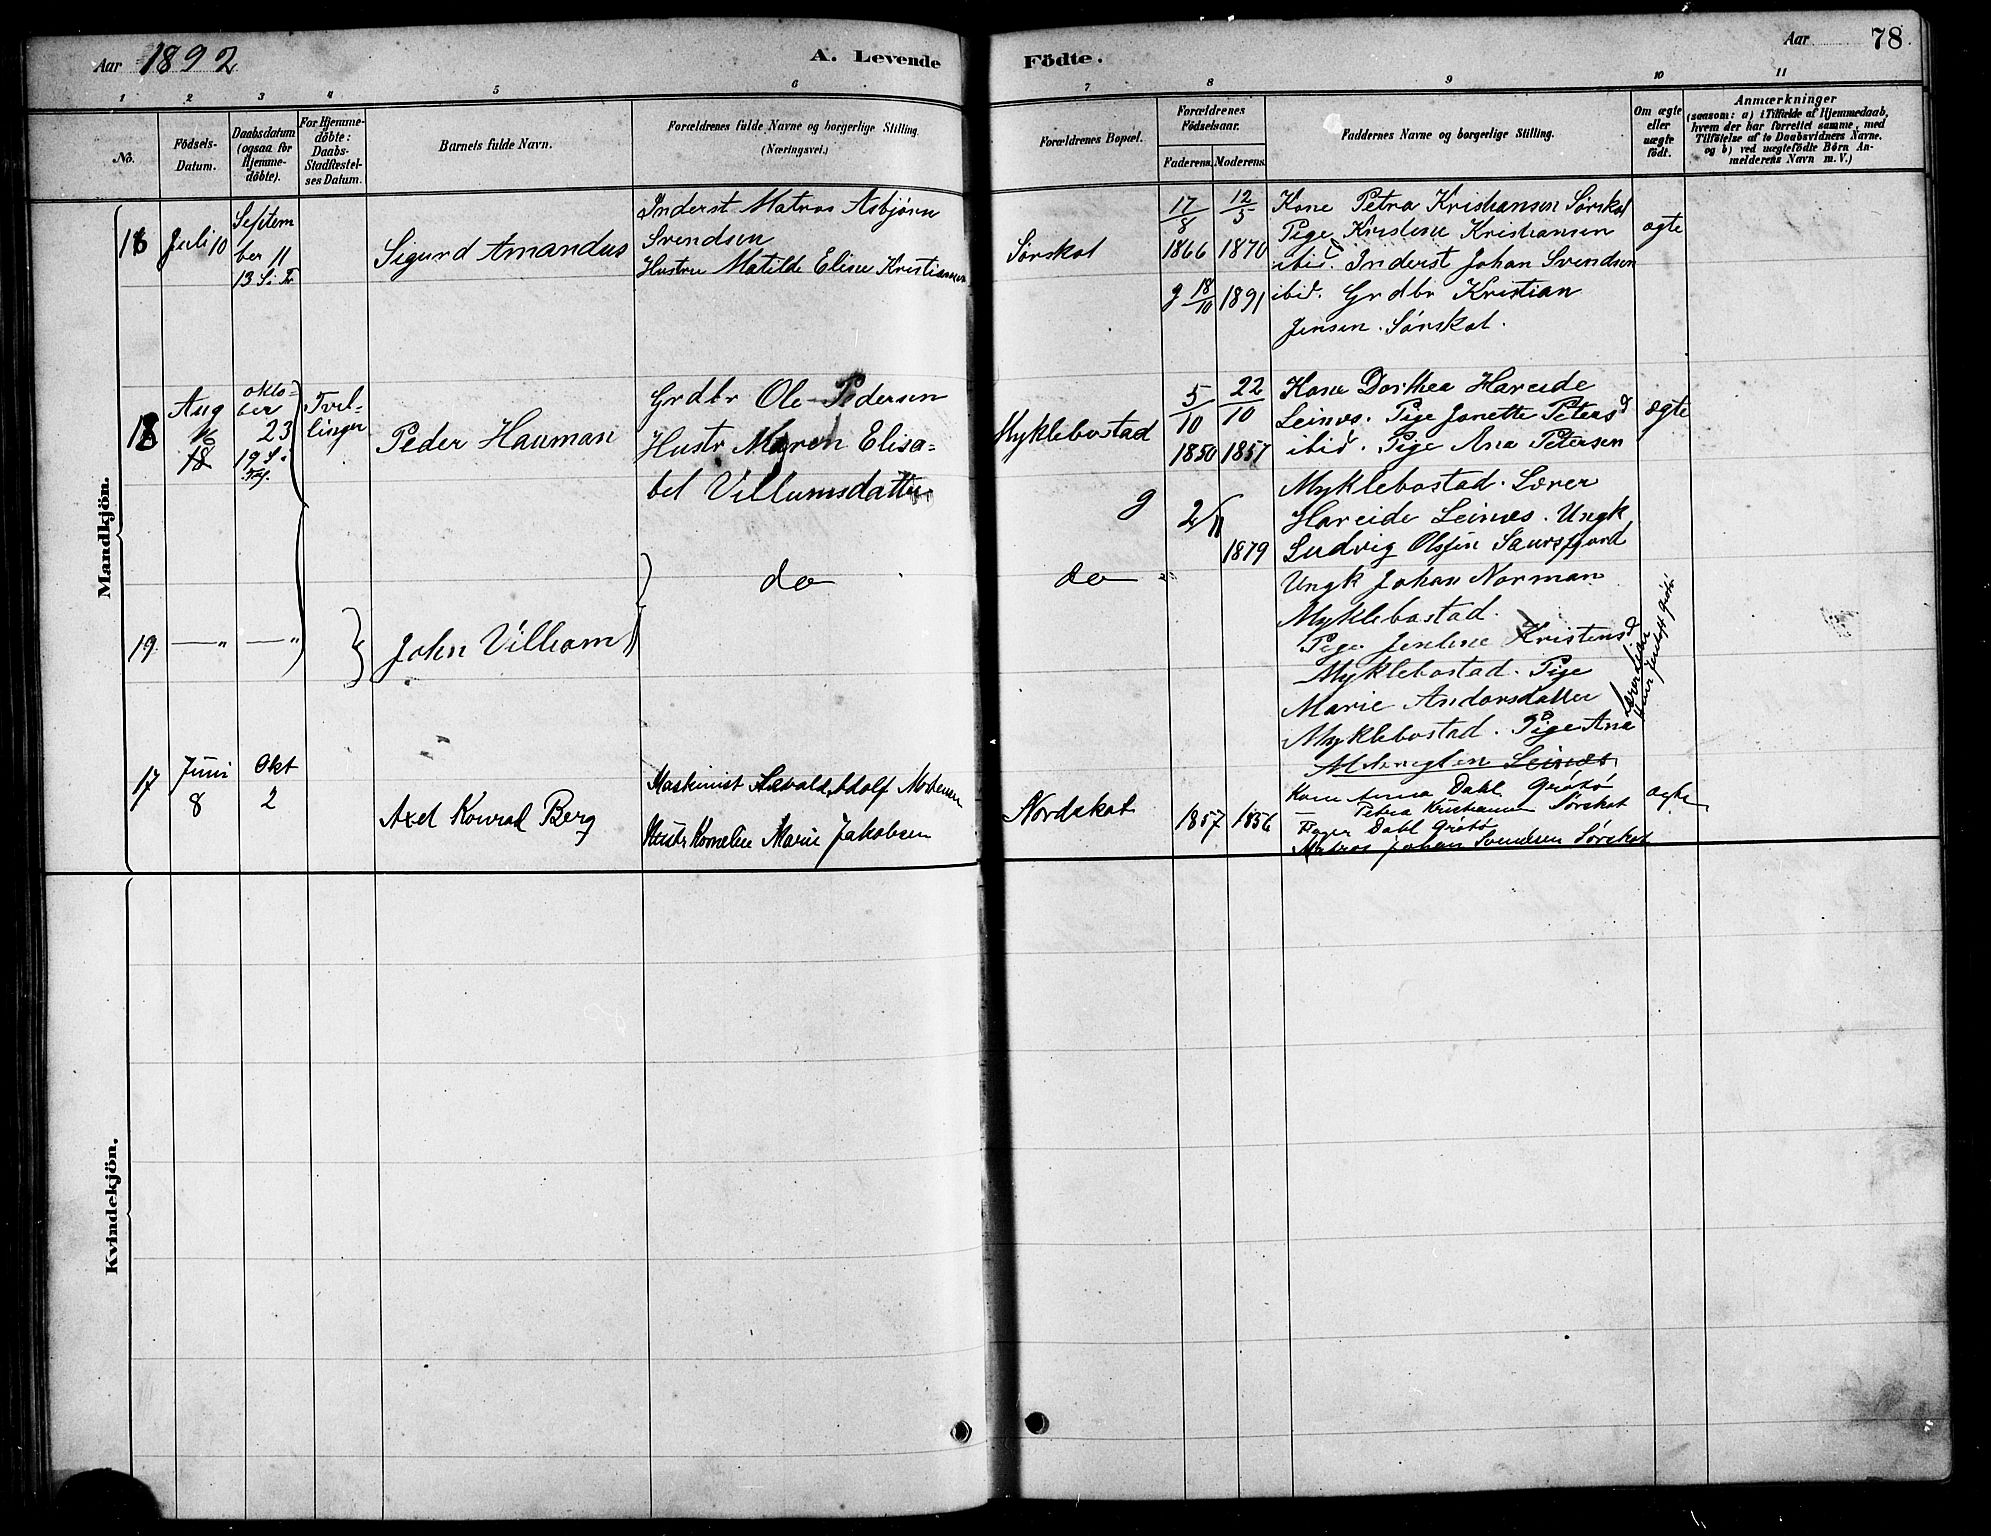 Aar 1892
A. Levende
Födte.
Aar
78
1
2
3
4
5
6
7
8
9
10
11
No.
Födsels-
Datum.
Daabsdatum
(ogsaa for
Hjemme-
döbte).
For Hjemme-
döbte:
Daabs-
Stadfæstel-
ses Datum.
Barnets fulde Navn.
Forældrenes fulde Navne og borgerlige Stilling.
(Næringsvei.)
Forældrenes Bopæl.
Forældrenes
Födselsaar.
Faderens.
Moderens.
Faddernes Navne og borgerlige Stilling.
Om ægte
eller
uægte
födt.
Anmærkninger
(saasom: a) i Tilfælde af Hjemmedaab,
hvem der har forrettet samme, med
Tilföielse af to Daabsvidners Navne.
og b) ved uægtefödte Börn An-
melderens Navn m. V.)
Mandkjön.
16
Juli 10
Septem
ber 11
13 S. Tr
Sigurd Amandus
Inderst Matros Asbjørn
Svendsen
Hustru Matilde Elise Kristiansen
Sørskot
17/8
1866
12/5
1870
g 18/10 1891
Kone Petra Kristiansen Sørskot
Pige Kristine Kristiansen
ibid. Inderst Johan Svendsen
ibid. Grdbr Kristian
Jensen. Sørskot.
ægte
18
Aug
16
18
okto-
ber
23
19 S.
Tr.
Tvil-
linger
Peder Hauman
Grdbr Ole Pedersen
Hustr Maren Elisa-
bet Villumsdatter
Myklebostad
5/10
1850
22/10
1857
g 2/11
1879
Kone Dorthea Hareide
Leines. Pige Janette Petersd
ibid. Pige Ana Petersen
Myklebostad. Lærer
Hareide Leines. Ungk
Ludvig Olsen Saursfjord
Ungk Johan Norman
Myklebostad.
ægte
19
— "
— "
John Villiam
do
do
Pige Jentine Kristensd
Myklebostad. Pige
Marie Andorsdatter
Myklebostad. Pige Ane
Leines
17
Juni
8
Okt
2
Axel Konrad Berg
Maskinist Sævald Adolf Mortensen
Hustr Kornelie Marie Jakobsen
Nordskot
1857
1856
Kone Anna Dahl Grøtø
— Petra Kristiansen Nørskot
Peder Dahl Grøtø
Matros Johan Svendsen Sørskot
ægte
Kvindekjön.